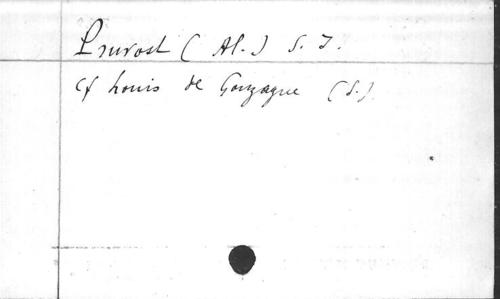 Pruvost (Al.) S. J.
cf Louis de Gonzague (S.).